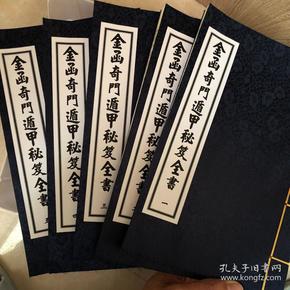 金函奇門遁甲秘笈全書 一
金函奇門遁甲秘笈全書
金函奇門遁甲秘笈全書 三
金函奇門遁甲秘笈全書 四
金函奇門遁甲秘笈全書
孔夫子旧书网